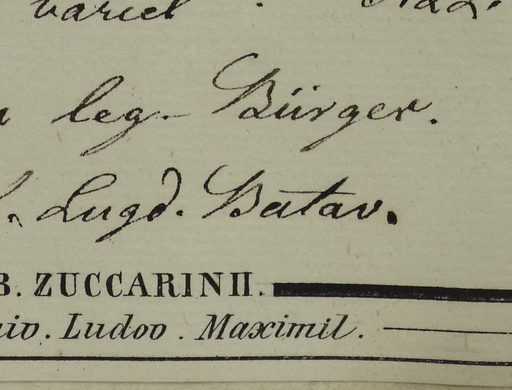 leg. Bürger.
Lugd. Batav.
B. ZUCCARINII.
Ludov. Maximil.